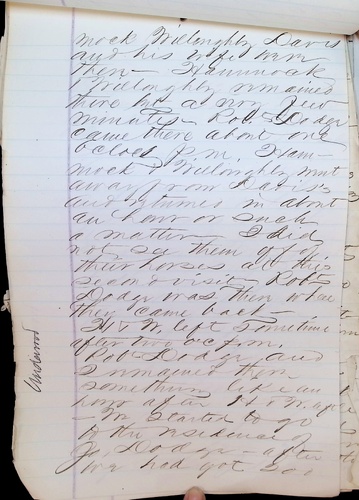 mock Willoughby Davis
and his wife were
there - Hammock
& Willoughby remained
there but a very few
minutes - Rob Dodge
came there about one
o'clock P.M. Ham-
mock & Willoughby went
away from Davis's
and returned in about
an hour or such
a matter - I did
not see them get off
their horses at this
second visit - Rob
Dodge was there when
they came back -
H & W. left sometime
after two o'c P.M.
Rob Dodge and
I remained there
something like an
hour after H & W. left
- We started to go
to the residence of
Dodge - after
we had got
Underwood